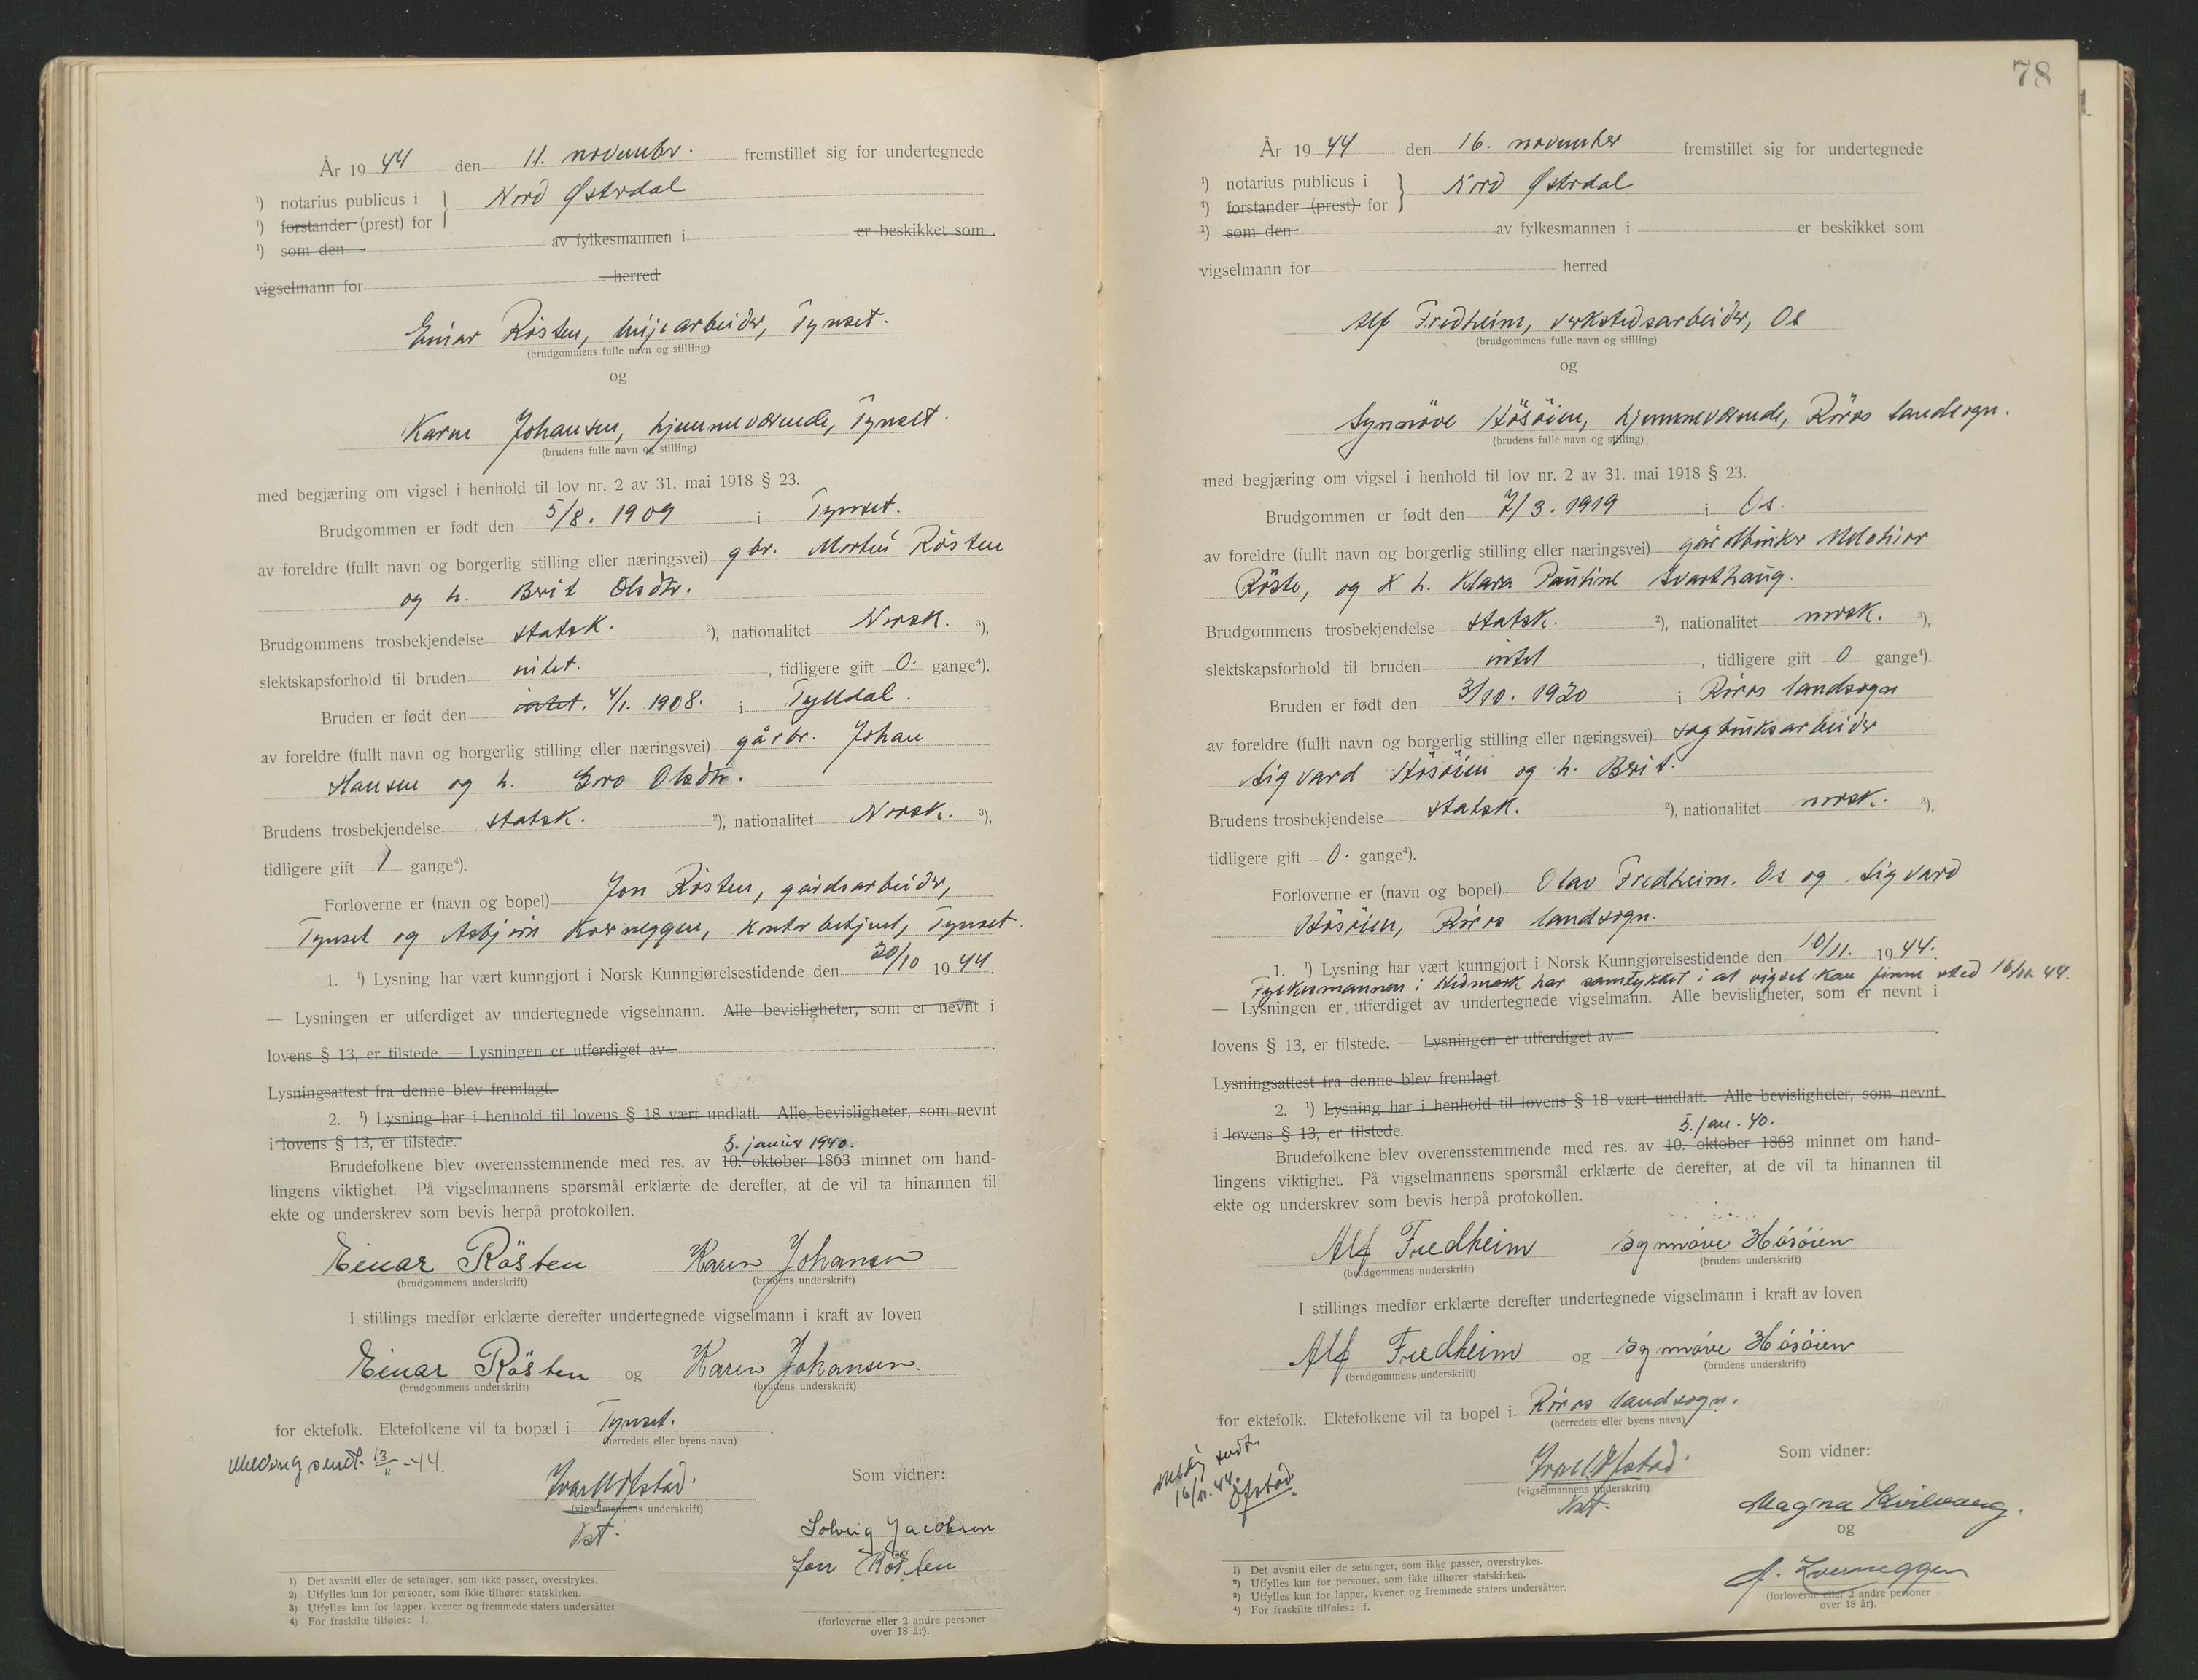 År 19 44 den 11. novembr. fremstillet sig for undertegnede
¹) notarius publicus i } Nord Østrdal
¹) forstander (prest) for
¹) som den av fylkesmannen i er beskikket som
vigselmann for herred
Einar Rösten, linjearbeider, Tynset.
(brudgommens fulle navn og stilling)
og
Karen Johansen, hjemmeværende, Tynset.
(brudens fulle navn og stilling)
med begjæring om vigsel i henhold til lov nr. 2 av 31. mai 1918 § 23.
Brudgommen er født den 5/8. 1909 i Tynset.
av foreldre (fullt navn og borgerlig stilling eller næringsvei) gbr. Morten Rösten
og h. Brit Olsdtr.
Brudgommens trosbekjendelse statsk. ²), nationalitet Norsk. ³),
slektskapsforhold til bruden intet. , tidligere gift 0. gange⁴).
Bruden er født den intet. 4/1. 1908. i Tylldal.
av foreldre (fullt navn og borgerlig stilling eller næringsvei) gårbr. Johan
Hansen og h. Gro Olsdtr.
Brudens trosbekjendelse statsk. ²), nationalitet Norsk. ³),
tidligere gift 1 gange⁴).
Forloverne er (navn og bopel) Jon Rösten, gårdsarbeider,
Tynset og Asbjörn Kverneggen, kontorbetjent, Tynset.
1. ¹) Lysning har vært kunngjort i Norsk Kunngjørelsestidende den 20/10 19 44.
— Lysningen er utferdiget av undertegnede vigselmann. Alle bevisligheter, som er nevnt i
lovens § 13, er tilstede. — Lysningen er utferdiget av .
Lysningsattest fra denne blev fremlagt.
2. ¹) Lysning har i henhold til lovens § 18 vært undlatt. Alle bevisligheter, som nevnt
i lovens § 13, er tilstede.
5. januar 1940.
Brudefolkene blev overensstemmende med res. av 10. oktober 1863 minnet om hand-
lingens viktighet. På vigselmannens spørsmål erklærte de derefter, at de vil ta hinannen til
ekte og underskrev som bevis herpå protokollen.
Einar Rösten Karen Johansen
(brudgommens underskrift) (brudens underskrift)
I stillings medfør erklærte derefter undertegnede vigselmann i kraft av loven
Einar Rösten og Karen Johansen.
(brudgommens underskrift) (brudens underskrift)
for ektefolk. Ektefolkene vil ta bopæl i Tynset.
(herredets eller byens navn)
Melding sendt. 13/11 -44.
Som vidner:
Ivar Ofstad.
(vigselmannens underskrift)
Solveig Jacobsen
og
Jon Rösten
1) Det avsnitt eller de setninger, som ikke passer, overstrykes.
2) Utfylles kun for personer, som ikke tilhører statskirken.
3) Utfylles kun for lapper, kvener og fremmede staters undersåtter
4) For fraskilte tilføies: f.
(forloverne eller 2 andre personer
over 18 år).
78
År 19 44 den 16. november fremstillet sig for undertegnede
¹) notarius publicus i } Nord Østrdal
¹) forstander (prest) for
¹) som den av fylkesmannen i er beskikket som
vigselmann for herred
Alf Fredheim, verkstedsarbeider, Os
(brudgommens fulle navn og stilling)
og
Synnöve Hösöien, hjemmeværende, Röros landsogn.
(brudens fulle navn og stilling)
med begjæring om vigsel i henhold til lov nr. 2 av 31. mai 1918 § 23.
Brudgommen er født den 7/3. 1919 i Os.
av foreldre (fullt navn og borgerlig stilling eller næringsvei) gårdbruker Melchior
Röste, og h. Klara Pauline Svarthaug.
Brudgommens trosbekjendelse statsk. ²), nationalitet norsk. ³),
slektskapsforhold til bruden intet , tidligere gift 0 gange⁴).
Bruden er født den 3/10. 1920 i Röros landsogn
av foreldre (fullt navn og borgerlig stilling eller næringsvei) sagbruksarbeider
Sigvard Hösöien og h. Brit.
Brudens trosbekjendelse statsk. ²), nationalitet norsk. ³),
tidligere gift 0. gange⁴).
Forloverne er (navn og bopel) Olav Fredheim. Os og Sigvard
Hösöien, Röros landsogn.
1. ¹) Lysning har vært kunngjort i Norsk Kunngjørelsestidende den 10/11. 19 44.
Fylkesmannen i Hedmark har samtykket i at vigsel kan finne sted 16/11. 44.
— Lysningen er utferdiget av undertegnede vigselmann. Alle bevisligheter, som er nevnt i
lovens § 13, er tilstede. — Lysningen er utferdiget av .
Lysningsattest fra denne blev fremlagt.
2. ¹) Lysning har i henhold til lovens § 18 vært undlatt. Alle bevisligheter, som nevnt
i lovens § 13, er tilstede.
5. jan. 40.
Brudefolkene blev overensstemmende med res. av 10. oktober 1863 minnet om hand-
lingens viktighet. På vigselmannens spørsmål erklærte de derefter, at de vil ta hinannen til
ekte og underskrev som bevis herpå protokollen.
Alf Fredheim Synnöve Hösöien
(brudgommens underskrift) (brudens underskrift)
I stillings medfør erklærte derefter undertegnede vigselmann i kraft av loven
Alf Fredheim og Synnöve Hösöien
(brudgommens underskrift) (brudens underskrift)
for ektefolk. Ektefolkene vil ta bopel i Röros landsogn.
(herredets eller byens navn)
Melding sendt
16/11. 44.
Ofstad.
Som vidner:
Ivar Ofstad.
(vigselmannens underskrift)
Magna Kvilvang.
og
A. Kverneggen
(forloverne eller 2 andre personer
over 18 år).
1) Det avsnitt eller de setninger, som ikke passer, overstrykes.
2) Utfylles kun for personer, som ikke tilhører statskirken.
3) Utfylles kun for lapper, kvener og fremmede staters undersåtter.
4) For fraskilte tilføies: f.